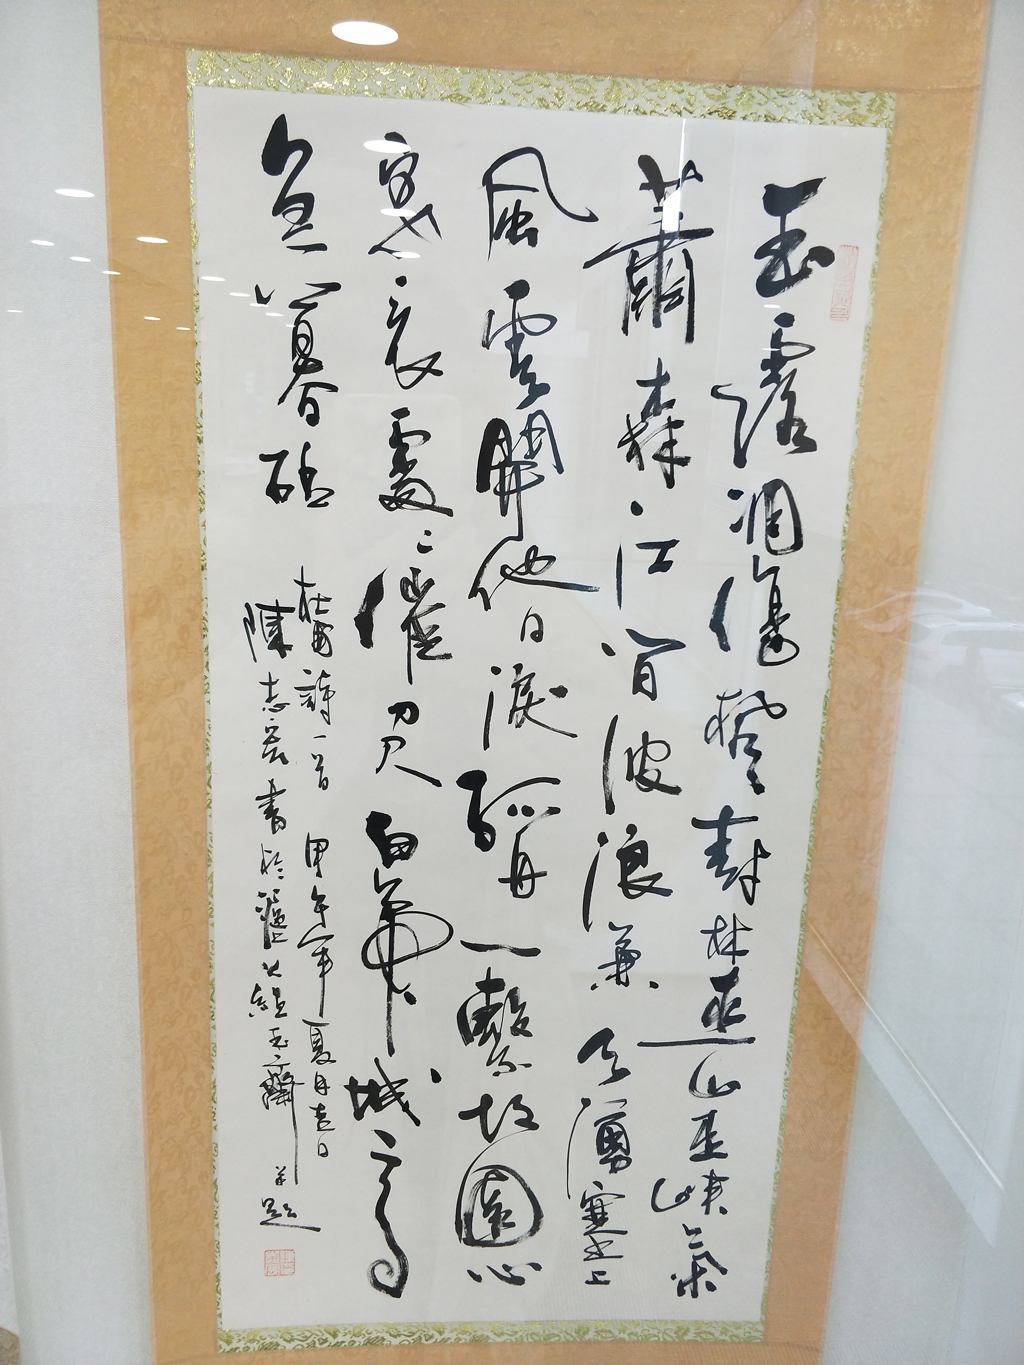 玉露凋傷楓樹林巫山巫峽氣
蕭森江間波浪兼天湧塞上
風雲開他日淚孤舟一繫故園心
寒衣處〻催刀尺白帝城高
急暮砧
杜甫詩一首 甲午年夏月吉日
陳志宏書於滬上玉齋并題